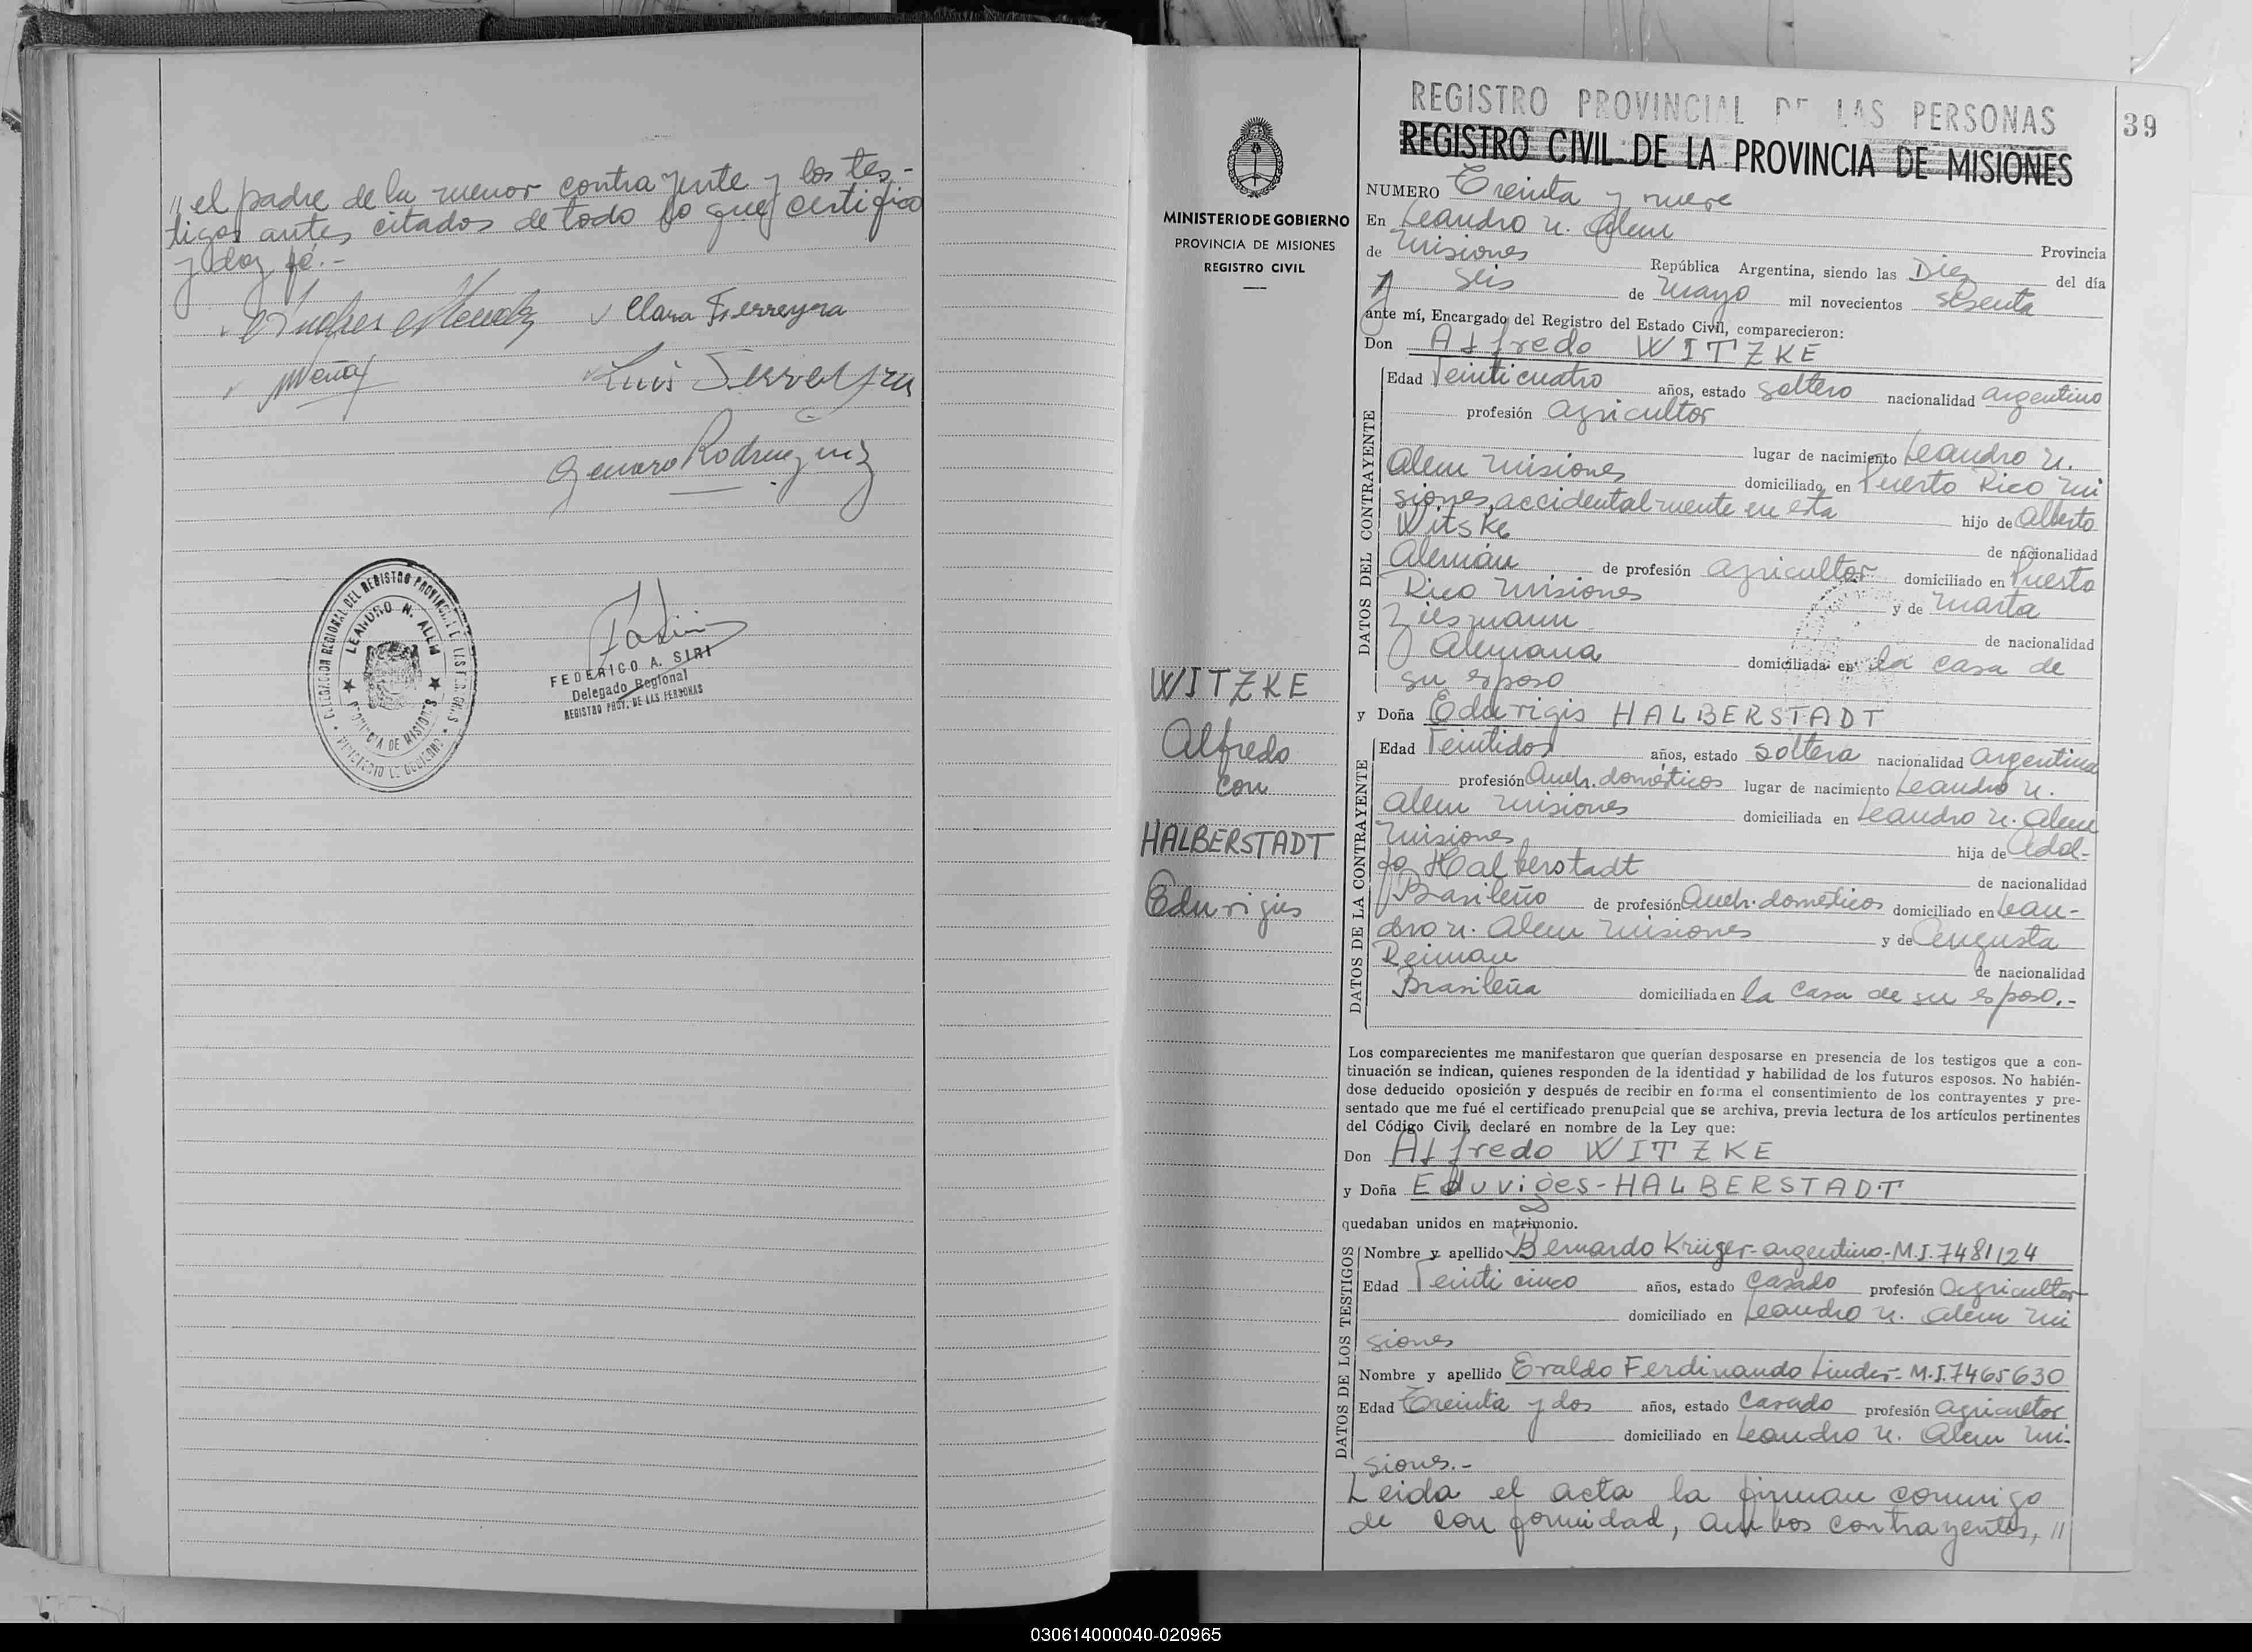 " el padre de la menor contrayente y los tes-
tigos antes citados de todo lo que certifico
y doy fé.-
Clara Ferreyra
Luis Ferreyra
Genaro Rodriguez
DELEGACION REGIONAL DEL REGISTRO PROVINCIAL DE LAS PERSONAS
LEANDRO N. ALEM
PROVINCIA DE MISIONES
MINISTERIO DE GOBIERNO
FEDERICO A. SIRI
Delegado Regional
REGISTRO PROV. DE LAS PERSONAS
MINISTERIO DE GOBIERNO
PROVINCIA DE MISIONES
REGISTRO CIVIL
WITZKE
Alfredo
con
HALBERSTADT
Eduvigis
REGISTRO PROVINCIAL DE LAS PERSONAS
39
REGISTRO CIVIL DE LA PROVINCIA DE MISIONES
NUMERO Treinta y nueve
En Leandro N. Alem
de Misiones Provincia
República Argentina, siendo las Diez del día
seis de Mayo mil novecientos sesenta
ante mí, Encargado del Registro del Estado Civil, comparecieron:
Don Alfredo WITZKE
DATOS DEL CONTRAYENTE
Edad Veinticuatro años, estado soltero nacionalidad argentino
profesión agricultor
lugar de nacimiento Leandro N.
Alem Misiones domiciliado en Puerto Rico Mi
siones, accidentalmente en esta hijo de Alberto
Witske de nacionalidad
Alemán de profesión agricultor domiciliado en Puerto
Rico Misiones y de Marta
Zilsmann de nacionalidad
Alemana domiciliada en la casa de
su esposo
y Doña Eduvigis HALBERSTADT
DATOS DE LA CONTRAYENTE
Edad Veintidos años, estado soltera nacionalidad argentina
profesión Queh. domésticos lugar de nacimiento Leandro N.
Alem Misiones domiciliada en Leandro N. Alem
Misiones hija de Adol-
fo Halberstadt de nacionalidad
Brasileño de profesión Queh. domésticos domiciliado en Lean-
dro N. Alem Misiones y de Augusta
Reiman de nacionalidad
Brasileña domiciliada en la casa de su esposo.-
Los comparecientes me manifestaron que querían desposarse en presencia de los testigos que a con-
tinuación se indican, quienes responden de la identidad y habilidad de los futuros esposos. No habién-
dose deducido oposición y después de recibir en forma el consentimiento de los contrayentes y pre-
sentado que me fué el certificado prenupcial que se archiva, previa lectura de los artículos pertinentes
del Código Civil, declaré en nombre de la Ley que:
Don Alfredo WITZKE
y Doña Eduviges-HALBERSTADT
quedaban unidos en matrimonio.
DATOS DE LOS TESTIGOS
Nombre y apellido Bernardo Krüger-argentino-M.I.7481124
Edad Veinti cinco años, estado Casado profesión Agricultor
domiciliado en Leandro N. Alem Mi
siones
Nombre y apellido Evaldo Ferdinando Linder- M.I.7465630
Edad Treinta y dos años, estado Casado profesión agricultor
domiciliado en Leandro N. Alem Mi-
siones.-
Leida el acta la firman conmigo
de conformidad, ambos contrayentes, "
030614000040-020965